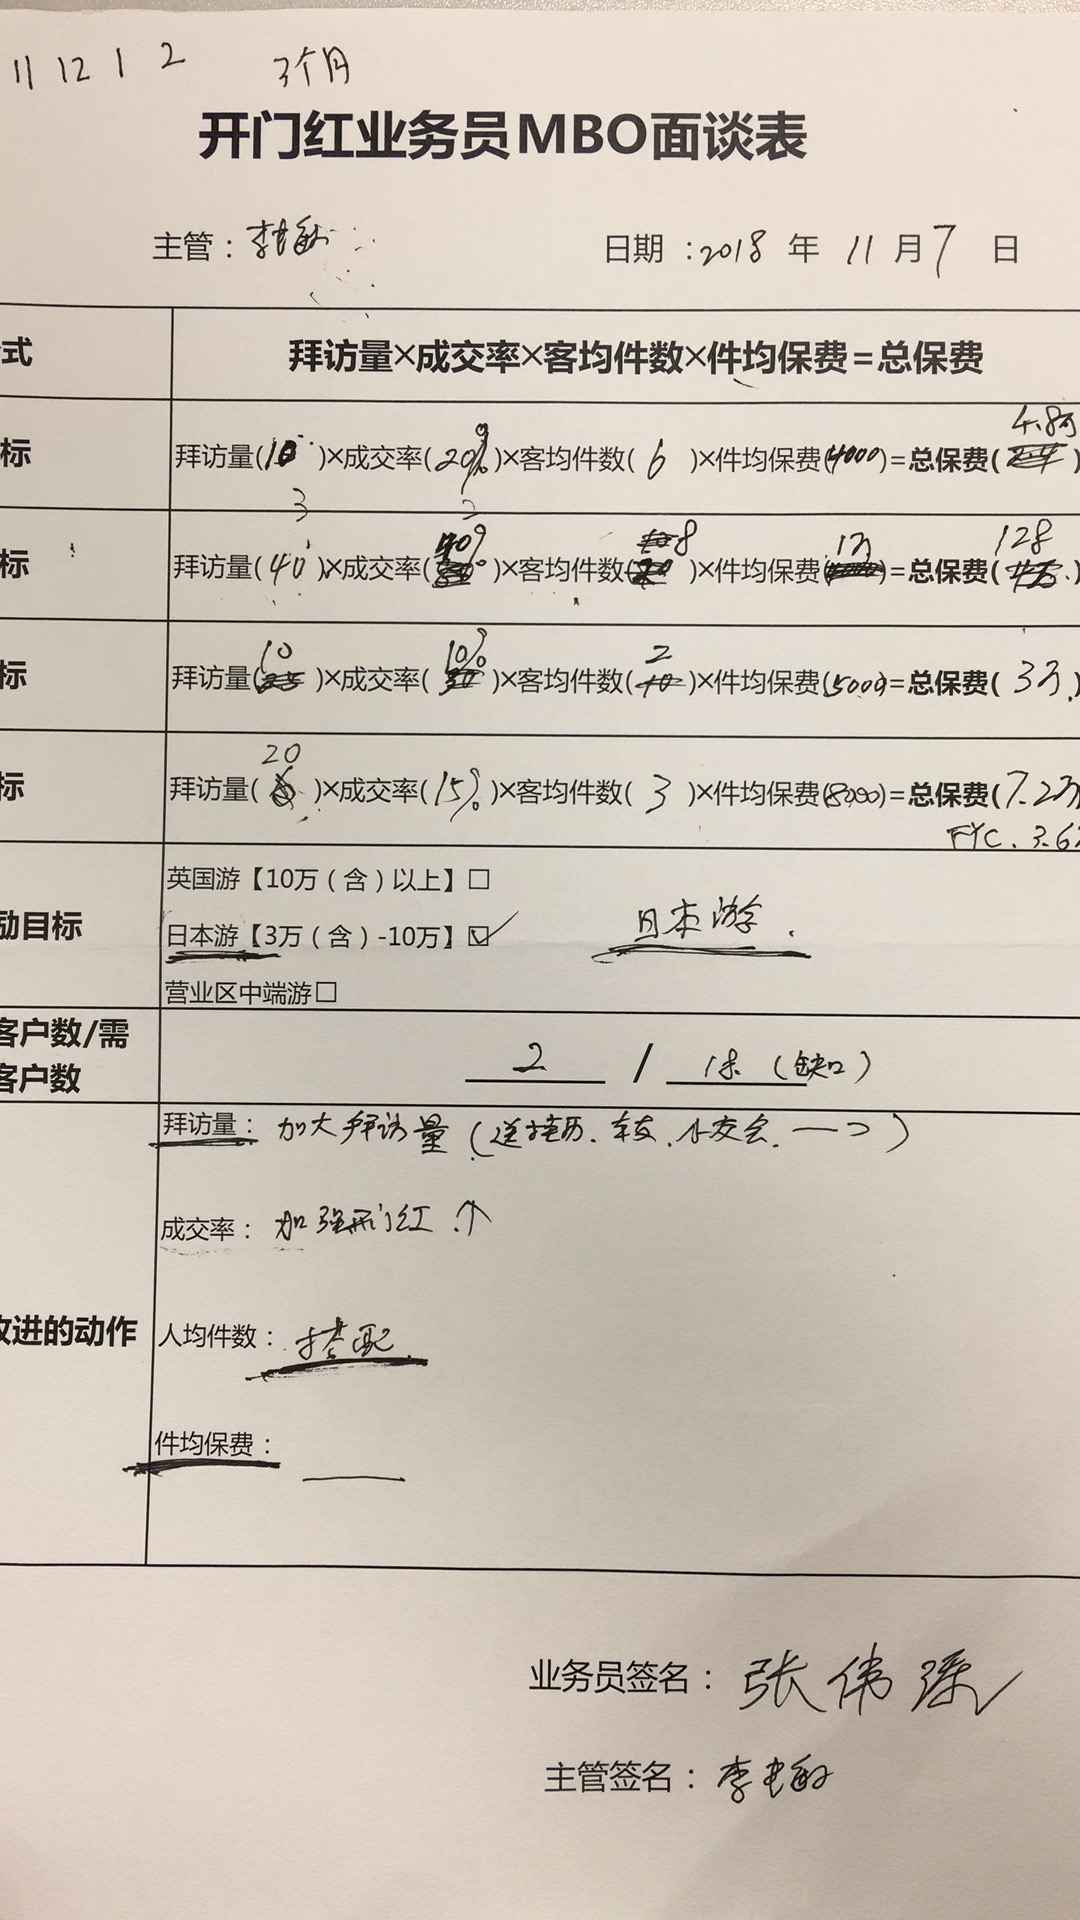 11 12 1 2 3个月
开门红业务员MBO面谈表
主管： 日期：2018 年 11 月 7 日
式 拜访量×成交率×客均件数×件均保费=总保费
4.8万
标 拜访量(10)×成交率(20%)×客均件数(6)×件均保费(4000)=总保费( )
3
40% 8 1万 128
标 拜访量(40)×成交率( )×客均件数( )×件均保费( )=总保费( )
10 10% 2
标 拜访量( )×成交率( )×客均件数( )×件均保费(5000)=总保费(3万)
20
标 拜访量( )×成交率(15%)×客均件数(3)×件均保费(8000)=总保费(7.2万
FYC. 3.6
英国游【10万（含）以上】□
励目标 日本游【3万（含）-10万】☑ 日本游.
营业区中端游□
客户数/需
客户数 2 / (缺口)
拜访量：加大拜访量(送挂历、 、小交会、一 )
成交率：加强开门红↑
改进的动作 人均件数：搭配
件均保费：
业务员签名：张伟
主管签名：李